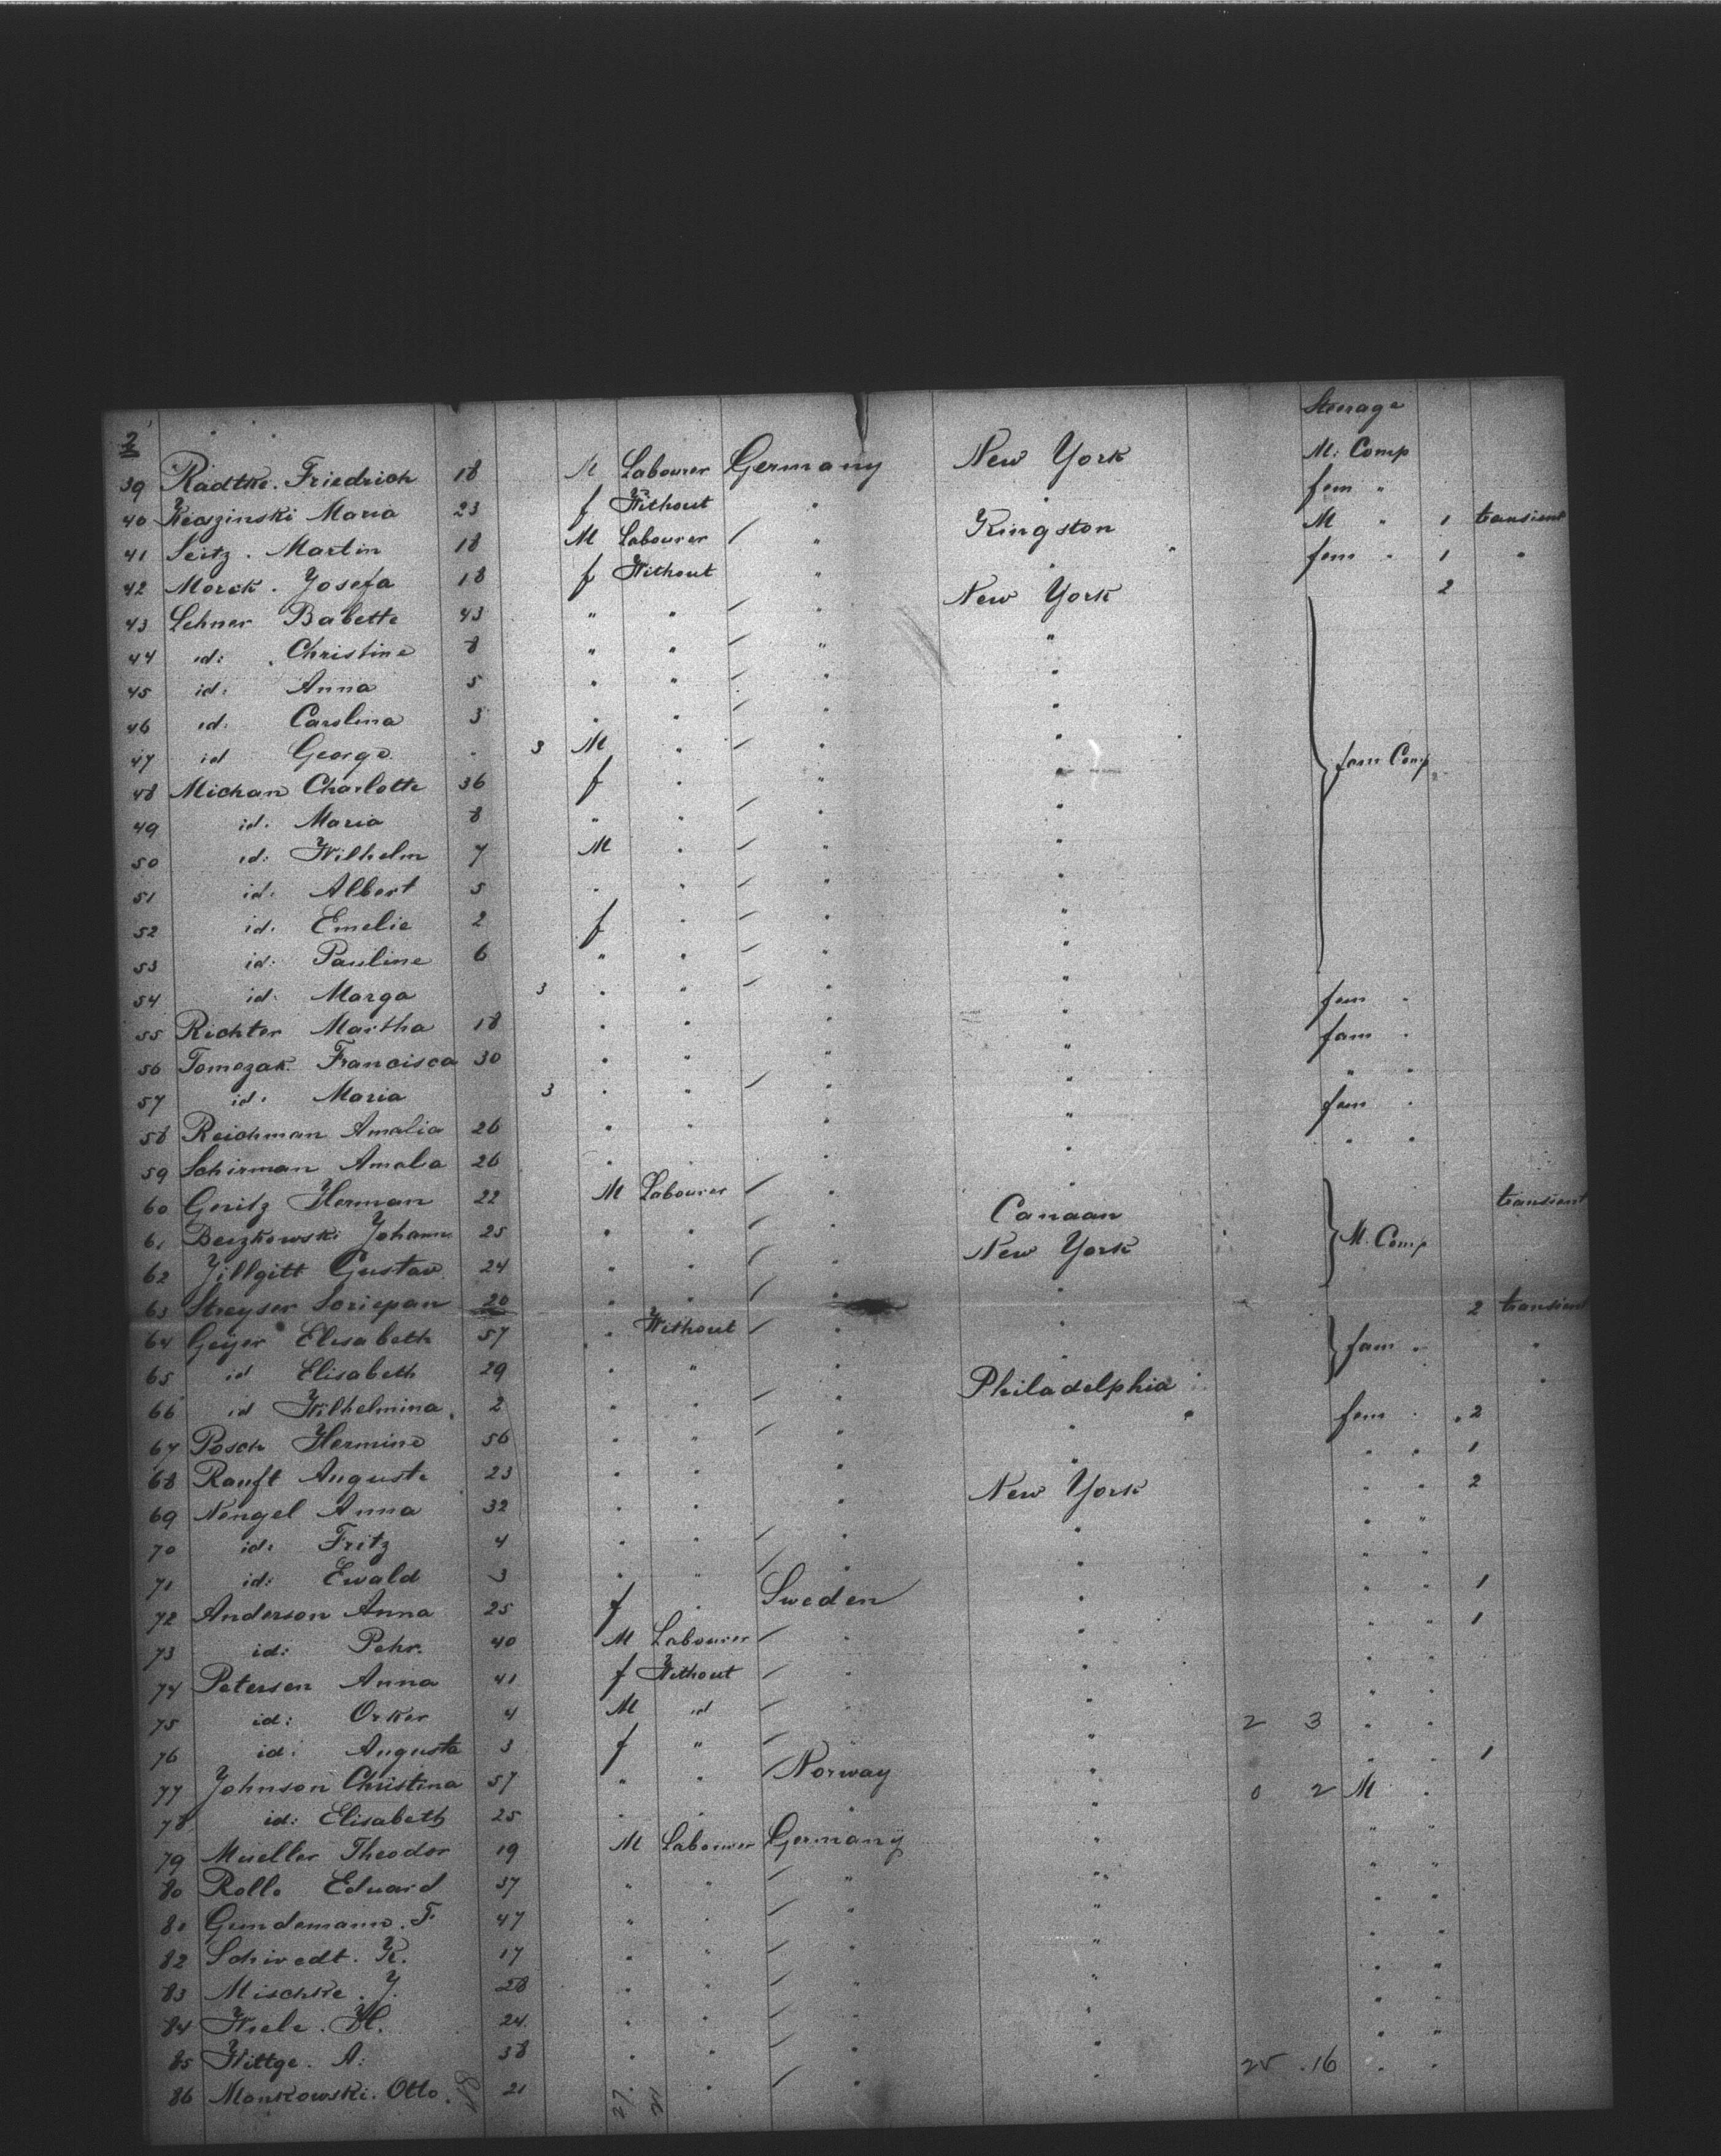 2
Steerage
39 Radtke. Friedrich 18 M Labourer Germany New York M: Comp
40 Maria 23 f Without " " fem "
41 Seitz. Martin 18 M Labourer " Kingston M " 1 transient
42 Morck. Josefa 18 f Without " " fem " 1 "
43 Lehner Babette 43 " " " New York 2
44 id: Christine 8 " " " "
45 id: Anna 5 " " " "
46 id: Carolina 3 " " " "
47 id George 3 M " " " fam Comp
48 Michan Charlotte 36 f " " "
49 id: Maria 8 " " " "
50 id: Wilhelm 7 M " " "
51 id: Albert 5 " " " "
52 id: Emelie 2 f " " "
53 id: Pauline 6 " " " "
54 id: Marga 3 " " " "
55 Richter Martha 18 " " " " fem "
56 Tomczak. Francisca 30 " " " " fam "
57 id: Maria 3 " " " " " "
58 Reichman Amalia 26 " " " " fem "
59 Schirman Amala 26 " " " " " "
60 Goritz Herman 22 M Labourer " "
61 Beszkowski Johann 25 " " " Canaan transient
62 Jillgitt Gustav 24 " " " New York M. Comp
63 Streyser 20 " " " "
64 Geijer Elisabeth 57 " Without " " 2 transient
65 id Elisabeth 29 " " " " fam " "
66 id Wilhelmina 2 " " " Philadelphia "
67 Posch Hermine 56 " " " " fem " 2
68 Ranft Auguste 23 " " " " " " 1
69 Nengel Anna 32 " " " New York " " 2
70 id: Fritz 4 " " " " " "
71 id: Ewald 3 " " " " " "
72 Anderson Anna 25 f " Sweden " " " 1
73 id: Pehr. 40 M Labourer " " " " 1
74 Petersen Anna 41 f Without " " " "
75 id: Orker 4 M id " " " "
76 id: Augusta 3 f " " " 2 3 " "
77 Johnson Christina 57 " " Norway " " " 1
78 id: Elisabeth 25 " " " " 0 2 M "
79 Mueller Theodor 19 M Labourer Germany " " "
80 Rollo Eduard 37 " " " " " "
81 Gundemann. F 47 " " " " " "
82 Schwedt. K. 17 " " " " " "
83 Mischke. J. 28 " " " " " "
84 Wiele. H. 24 " " " " " "
85 Wittge. A: 38 " " " " " "
86 Monkowski. Otto. 21 " " " " 25 16 " "
27. 21